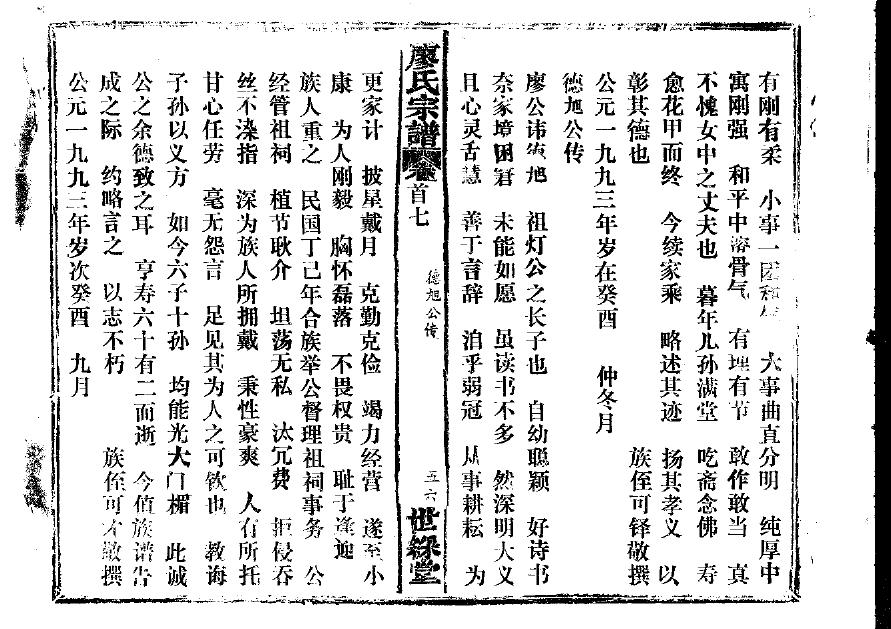 有刚有柔 小事一团和气 大事曲直分明 纯厚中
寓刚强 和平中溶骨气 有理有节 敢作敢当 真
不愧女中之丈夫也 暮年儿孙满堂 吃斋念佛 寿
愈花甲而终 今续家乘 略述其迹 扬其孝义 以
彰其德也 族侄可铎敬撰
公元一九九三年岁在癸酉 仲冬月
德旭公传
廖公讳旭 祖灯公之长子也 自幼聪颖 好诗书
奈家境困窘 未能如愿 虽读书不多 然深明大义
且心灵舌慧 善于言辞 洎乎弱冠 从事耕耘 为
廖氏宗谱 卷首七 德旭公传 五六 世綵堂
更家计 披星戴月 克勤克俭 竭力经营 遂至小
康 为人刚毅 胸怀磊落 不畏权贵 耻于逢迎
族人重之 民国丁己年合族举公督理祖祠事务 公
经管祖祠 植节耿介 坦荡无私 汰冗费 拒侵吞
丝不染指 深为族人所拥戴 秉性豪爽 人有所托
甘心任劳 毫无怨言 足见其为人之可钦也 教诲
子孙以义方 如今六子十孙 均能光大门楣 此诚
公之余德致之耳 享寿六十有二而逝 今值族谱告
成之际 约略言之 以志不朽 族侄可才敬撰
公元一九九三年岁次癸酉 九月